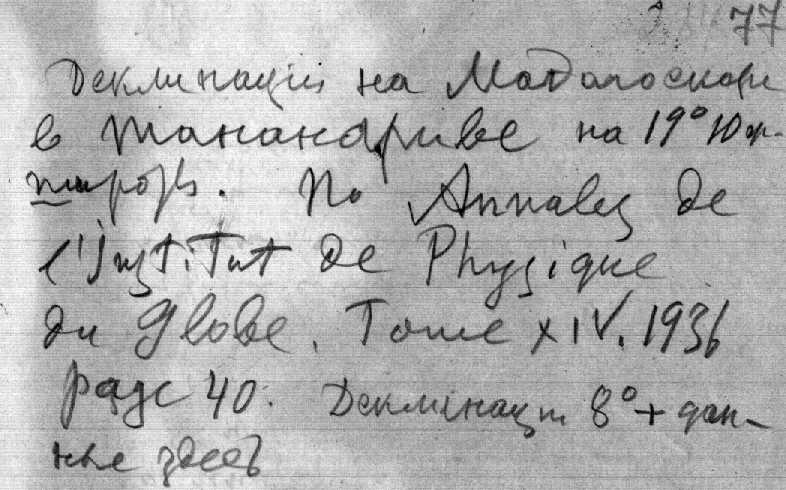 77
Деклинация на Мадагаскаре
в Тананариве на 19° Юж.
широты. По Annales de
l'Institut de Physique
du Globe. Tome XIV. 1936
page 40. Деклинация 8° + дан-
ные здесь